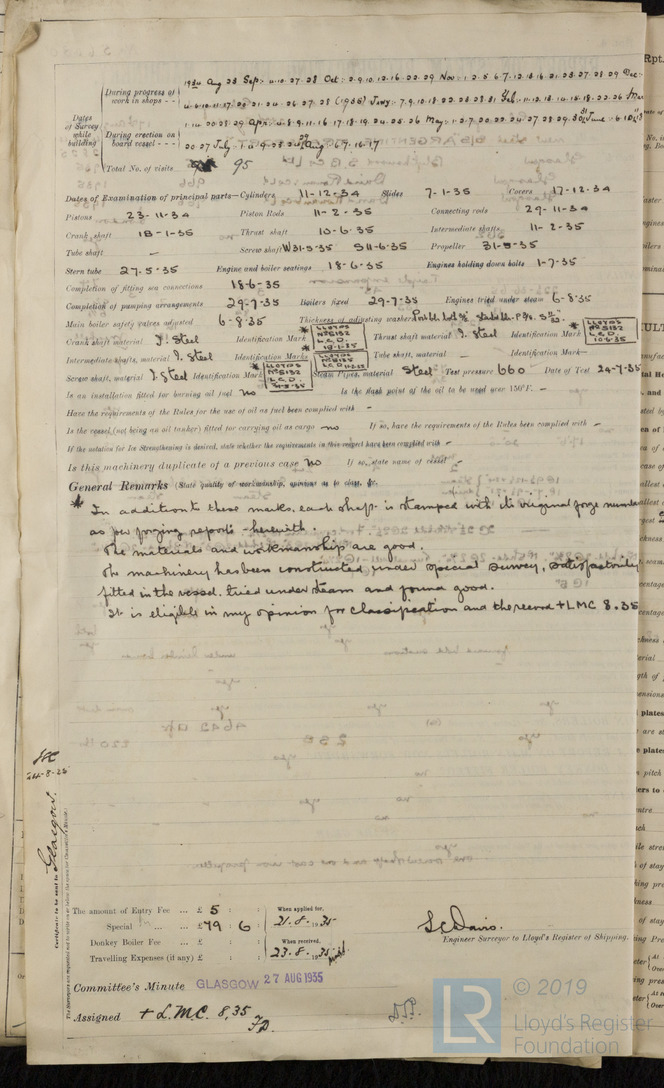 Dates of Survey while building
During progress of work in shops - -
1934 Aug 23 Sep: 4.10.27.28 Oct: 2.9.10.12.16.22.29 Nov: 1.2.5.6.7.12.15.16.21.23.27.28.29 Dec:
(1935) Jany: 7.9.10.18.22.23.28.31 Feb: 11.12.13.14.15.18.22.26 Mar
During erection on board vessel - - -
Total No. of visits 95
Dates of Examination of principal parts—Cylinders 11-12-34 Slides 7-1-35 Covers 17-12-34
Pistons 23-11-34 Piston Rods 11-2-35 Connecting rods 29-11-34
Crank shaft 18-1-35 Thrust shaft 10-6-35 Intermediate shafts 11-2-35
Tube shaft - Screw shaft W31-5-35 S11-6-35 Propeller 31-5-35
Stern tube 27-5-35 Engine and boiler seatings 18-6-35 Engines holding down bolts 1-7-35
Completion of fitting sea connections 18-6-35
Completion of pumping arrangements 29-7-35 Boilers fixed 29-7-35 Engines tried under steam 6-8-35
Main boiler safety valves adjusted 6-8-35 Thickness of adjusting washers
Crank shaft material I. Steel Identification Mark * LLOYDS No 5132 L.C.D. 18-1-35 Thrust shaft material I. Steel Identification Mark * LLOYDS No 5132 L.C.D. 10-6-35
Intermediate shafts, material I. Steel Identification Marks * LLOYDS No 5132 L.C.D. 11-2-35 Tube shaft, material - Identification Mark -
Screw shaft, material I. Steel Identification Mark * LLOYDS No 5132 L.C.D. Steam Pipes, material Steel Test pressure 660 Date of Test 29-7-35
Is an installation fitted for burning oil fuel no Is the flash point of the oil to be used over 150°F. -
Have the requirements of the Rules for the use of oil as fuel been complied with -
Is the vessel (not being an oil tanker) fitted for carrying oil as cargo no If so, have the requirements of the Rules been complied with -
If the notation for Ice Strengthening is desired, state whether the requirements in this respect have been complied with -
Is this machinery duplicate of a previous case no If so, state name of vessel -
General Remarks (State quality of workmanship, opinions as to class, &c.
* In addition to these marks, each shaft is stamped with its original forge number
as per forging reports herewith.
The materials and workmanship are good.
The machinery has been constructed under special survey, satisfactorily
fitted in the vessel, tried under steam and found good.
It is eligible in my opinion for classification and the record + LMC 8.35
Glasgow
Certificate to be sent to
The amount of Entry Fee ... £ 5 : :
Special ... £ 79 : 6 :
Donkey Boiler Fee ... £ : :
Travelling Expenses (if any) £ : :
When applied for, 21.8.1935
When received, 23.8.1935
L C Davis.
Engineer Surveyor to Lloyd's Register of Shipping.
Committee's Minute GLASGOW 27 AUG 1935
Assigned + L.M.C. 8,35
F.D.
LR © 2019
Lloyd's Register
Foundation